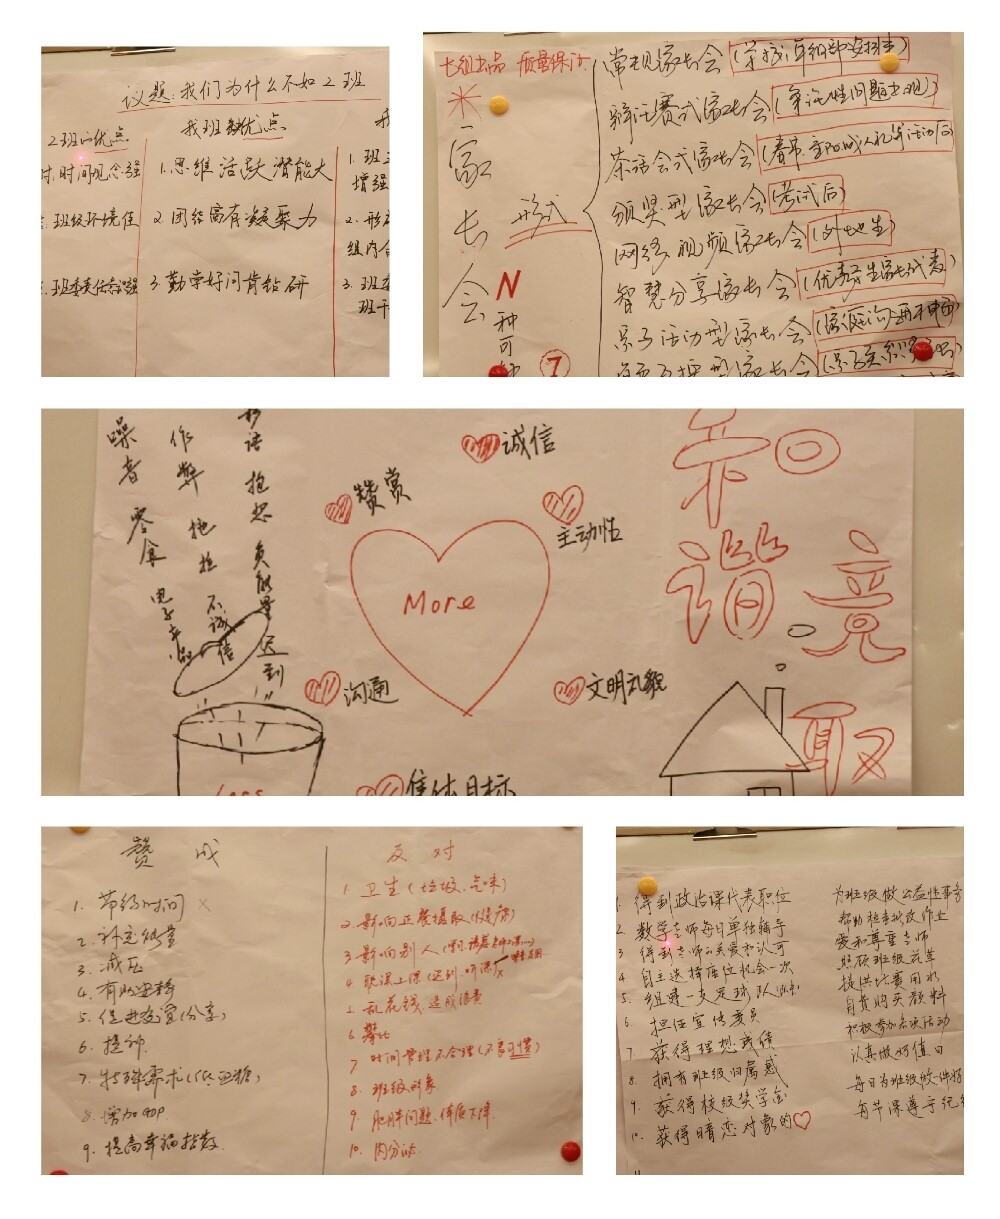 议题：我们为什么不如2班
2班的优点
时，时间观念强
班级环境佳
班委责任意识强
我班优点
1. 思维活跃潜能大
2. 团结高有凝聚力
3. 勤学好问肯钻研
1. 班
增强
2. 形
组内合
3. 班
班干
七组出品 质量保证
家长会
形式
N种可能
7
常规家长会(学校、年级部安排)
辩论赛式家长会(争论性问题出现)
茶话会式家长会(春节、主阳成人礼等活动后)
颁奖型家长会(考试后)
网络视频家长会(外地生)
智慧分享家长会(优秀学生家长代表)
亲子活动型家长会(家庭沟通不畅)
噪音
零食
电子产品
作弊
拖拉
不诚信
抱怨
负能量
迟到
Less
诚信
赞赏
主动性
More
沟通
文明礼貌
集体目标
和谐
意取
赞成
1. 节约时间 ×
2. 补充能量
3. 减压
4. 有助消化
5. 促进友谊(分享)
6. 提神
7. 特殊需求(低血糖)
8. 增加GDP
9. 提高幸福指数
反对
1. 卫生(垃圾、气味)
2. 影响正餐摄取(慢病)
3. 影响别人
4. 耽误上课(迟到、听课) ×
5. 乱花钱、造成浪费
6. 攀比
7. 时间管理不合理(不良习惯)
8. 班级形象
9. 肥胖问题、体质下降
10. 内分泌
1. 得到政治课代表职位
2. 数学老师每日单独辅导
3. 得到老师的关爱和认可
4 自主选择座位机会一次
5. 组建一支足球队
6. 担任宣传委员
7. 获得理想成绩
8. 拥有班级归属感
9. 获得校级奖学金
10. 获得暗恋对象的♡
为班级做公益性事务
帮助检查批改作业
爱和尊重老师
照顾班级花草
提供比赛用水
自费购买颜料
积极参加各项活动
认真做好值日
每日为班级做一件好
每节课遵守纪律